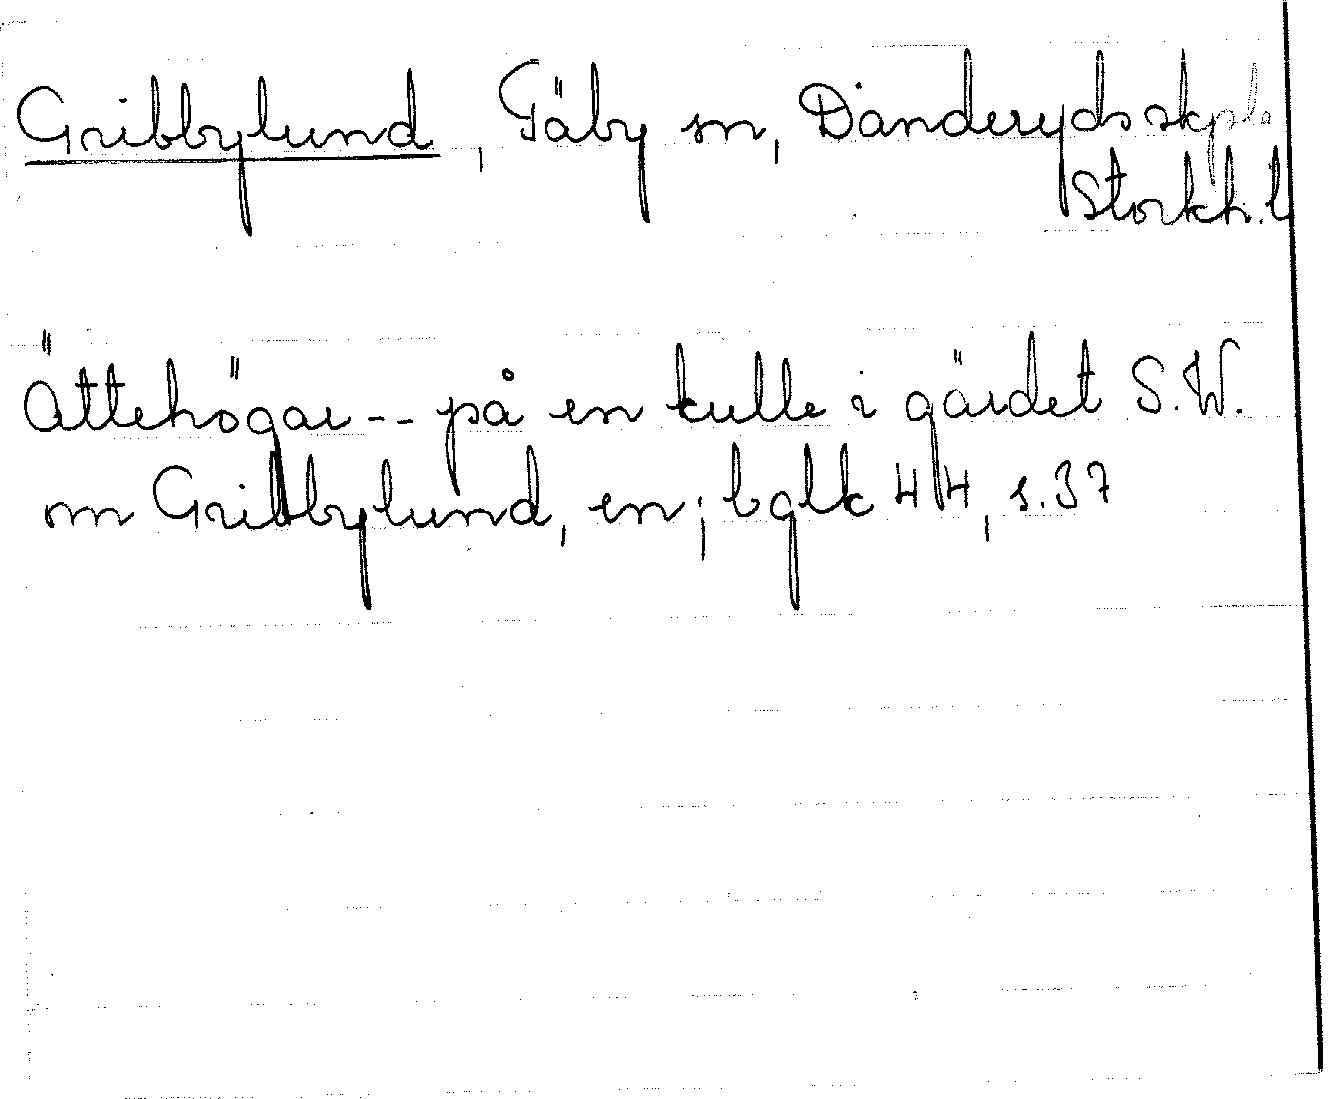 Gribbylund, Täby sn, Danderyds skpl.
Stockh. l
Ättehögar -- på en kulle i gärdet S.W.
om Gribbylund, en; bglk 44, s. 37